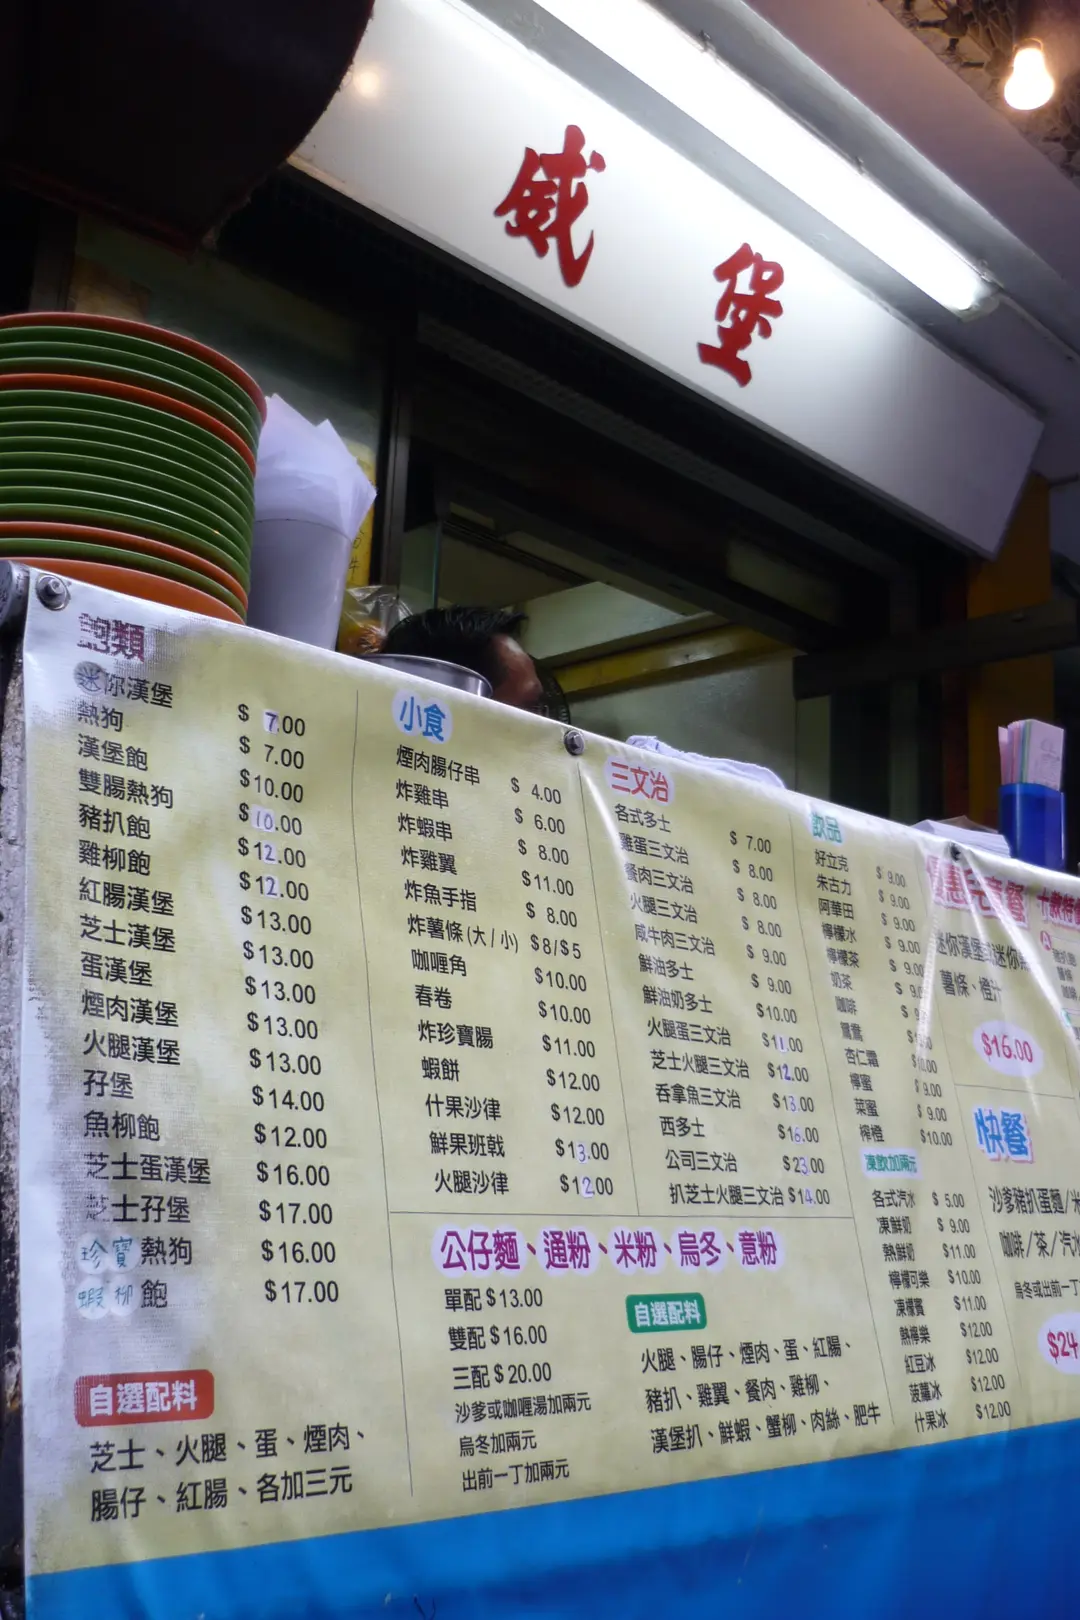 威堡
飽類
迷你漢堡 $ 7.00
熱狗 $ 7.00
漢堡飽 $10.00
雙腸熱狗 $10.00
豬扒飽 $12.00
雞柳飽 $12.00
紅腸漢堡 $13.00
芝士漢堡 $13.00
蛋漢堡 $13.00
煙肉漢堡 $13.00
火腿漢堡 $13.00
孖堡 $14.00
魚柳飽 $12.00
芝士蛋漢堡 $16.00
芝士孖堡 $17.00
珍寶熱狗 $16.00
蝦柳飽 $17.00
自選配料
芝士、火腿、蛋、煙肉、
腸仔、紅腸、各加三元
小食
煙肉腸仔串 $ 4.00
炸雞串 $ 6.00
炸蝦串 $ 8.00
炸雞翼 $11.00
炸魚手指 $ 8.00
炸薯條(大/小) $8/$5
咖喱角 $10.00
春卷 $10.00
炸珍寶腸 $11.00
蝦餅 $12.00
什果沙律 $12.00
鮮果班戟 $13.00
火腿沙律 $12.00
三文治
各式多士 $ 7.00
雞蛋三文治 $ 8.00
餐肉三文治 $ 8.00
火腿三文治 $ 8.00
咸牛肉三文治 $ 9.00
鮮油多士 $ 9.00
鮮油奶多士 $10.00
火腿蛋三文治 $11.00
芝士火腿三文治 $12.00
吞拿魚三文治 $13.00
西多士 $16.00
公司三文治 $23.00
扒芝士火腿三文治 $14.00
公仔麵、通粉、米粉、烏冬、意粉
單配 $13.00
雙配 $16.00
三配 $20.00
沙爹或咖喱湯加兩元
烏冬加兩元
出前一丁加兩元
自選配料
火腿、腸仔、煙肉、蛋、紅腸、
豬扒、雞翼、餐肉、雞柳、
漢堡扒、鮮蝦、蟹柳、肉絲、肥牛
飲品
好立克 $ 9.00
朱古力 $ 9.00
阿華田 $ 9.00
檸檬水 $ 9.00
檸檬茶 $ 9.00
奶茶 $ 9
咖啡 $ 9
鴛鴦
杏仁霜 $10.00
檸蜜 $ 9.00
菜蜜 $ 9.00
榨橙 $10.00
凍飲加兩元
各式汽水 $ 5.00
凍鮮奶 $ 9.00
熱鮮奶 $11.00
檸檬可樂 $10.00
凍檬賓 $11.00
熱檸樂 $12.00
紅豆冰 $12.00
菠蘿冰 $12.00
什果冰 $12.00
優惠兒童餐
迷你漢堡或迷你熱
薯條、橙汁
$16.00
快餐
沙爹豬扒蛋麵/米
咖啡/茶/汽水
烏冬或出前一丁
$24
十款特價